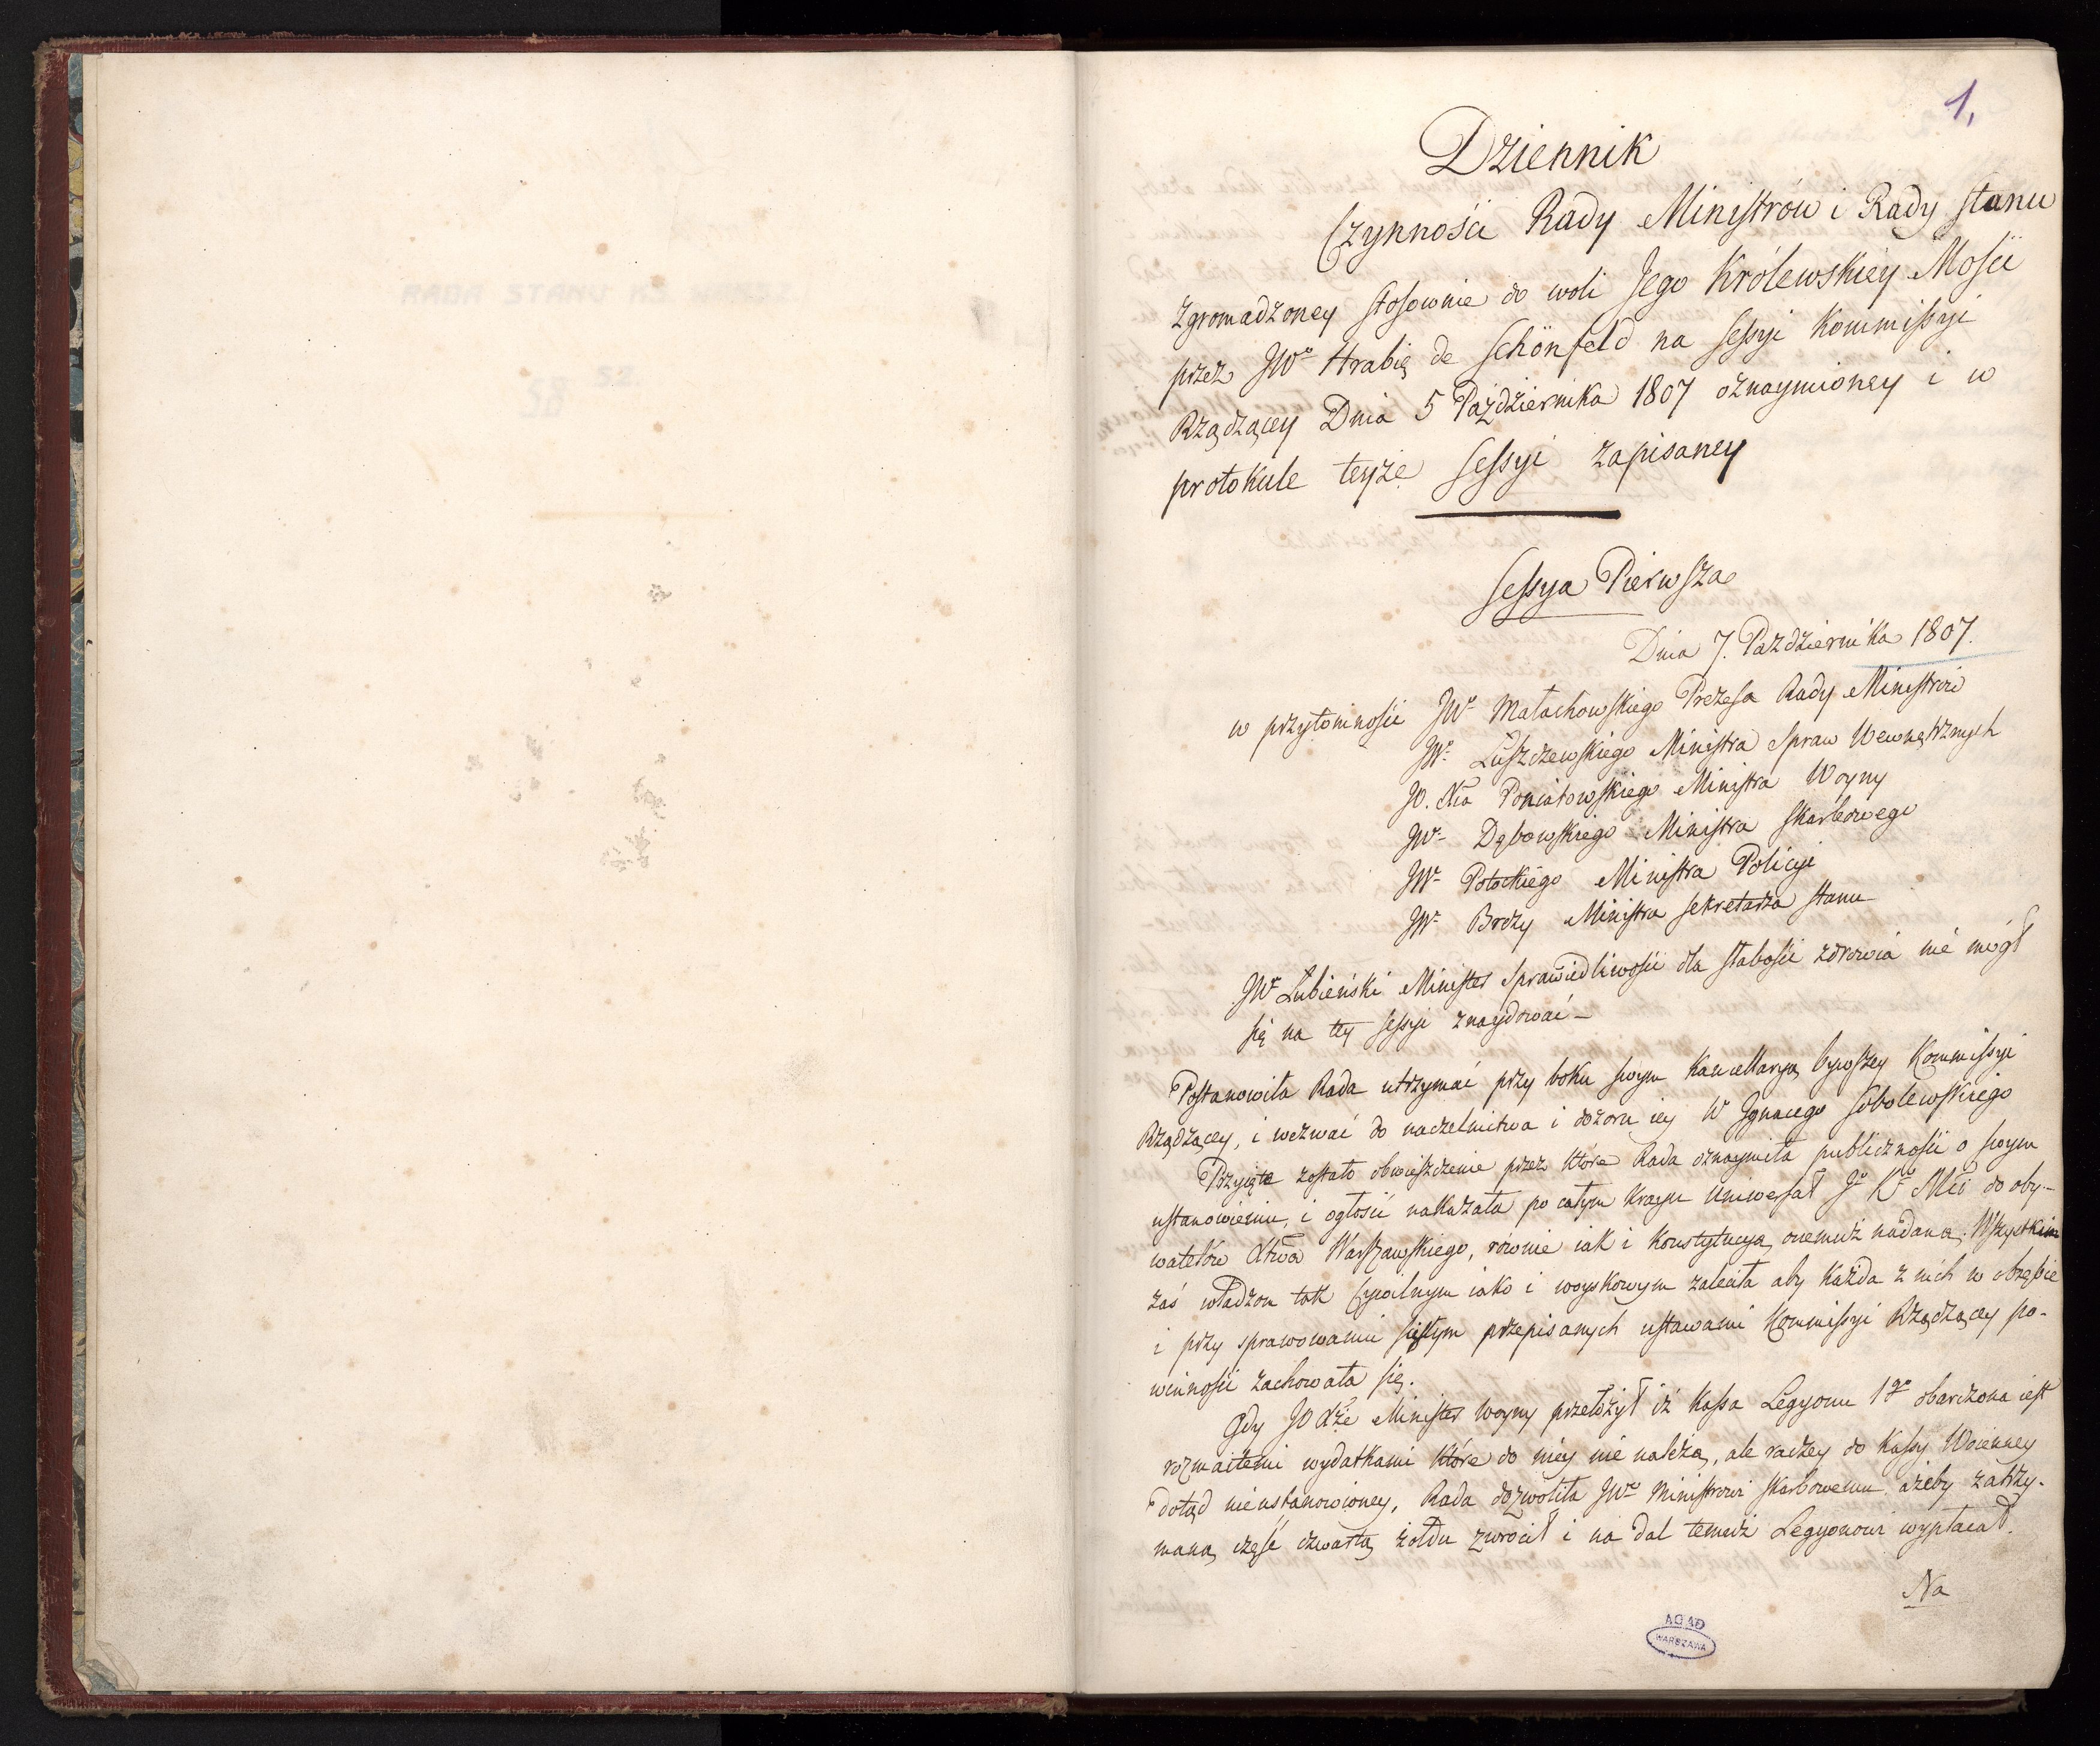 1,
Dziennik
Czynności Rady Ministrów i Rady Stanu
zgromadzoney stosownie do woli Jego Królewskiey Mości
przez JWo Hrabię de Schönfeld na sessyi Kommissyi
Rządzącey Dnia 5 Października 1807 oznaymioney i w
protokule teyże sessyi zapisaney
Sessya Pierwsza
Dnia 7. Października 1807.
w przytomności JWo Małachowskiego Prezesa Rady Ministrów
JWo Łuszczewskiego Ministra Spraw Wewnętrznych
JO. Xia Poniatowskiego Ministra Woyny
JWo Dębowskiego Ministra Skarbowego
JWo Potockiego Ministra Policyi
JWo Brezy Ministra Sekretarza Stanu
JWo Łubieński Minister Sprawiedliwości dla słabości zdrowia nie mógł
się na tey sessyi znaydować –
Postanowiła Rada utrzymać przy boku swym Kancellaryą bywszey Kommissyi
Rządzącey, i wezwać do naczelnictwa i dozoru iey W Ignacego Sobolewskiego
Przyięte zostało obwieszczenie przez które Rada oznaymiła publiczności o swym
ustanowieniu, i ogłosić nakazała po całym kraju Uniwersał Jo Kr Mci do oby-
watelów Xtwa Warszawskiego, równie iak i Konstytucyą onemuż nadaną. Wszystkim
zaś władzom tak Cywilnym iako i woyskowym zaleciła aby każda z nich w obrębie
i przy sprawowaniu ścisłym przepisanych ustawami Kommissyi Rządzącey po-
winności zachowała się.
Gdy JO Xże Minister Woyny przełożył iż Kassa Legyonu 1go obarczona iest
rozmaitemi wydatkami które do niey nie należą, ale raczey do Kassy Woienney
dotąd nieustanowioney, Rada dozwoliła JWo Ministrowi Skarbowemu ażeby zatrzy-
maną część czwartą żołdu zwrócił i na dal temuż Legyonowi wypłacał.
Na
AGAD
WARSZAWA